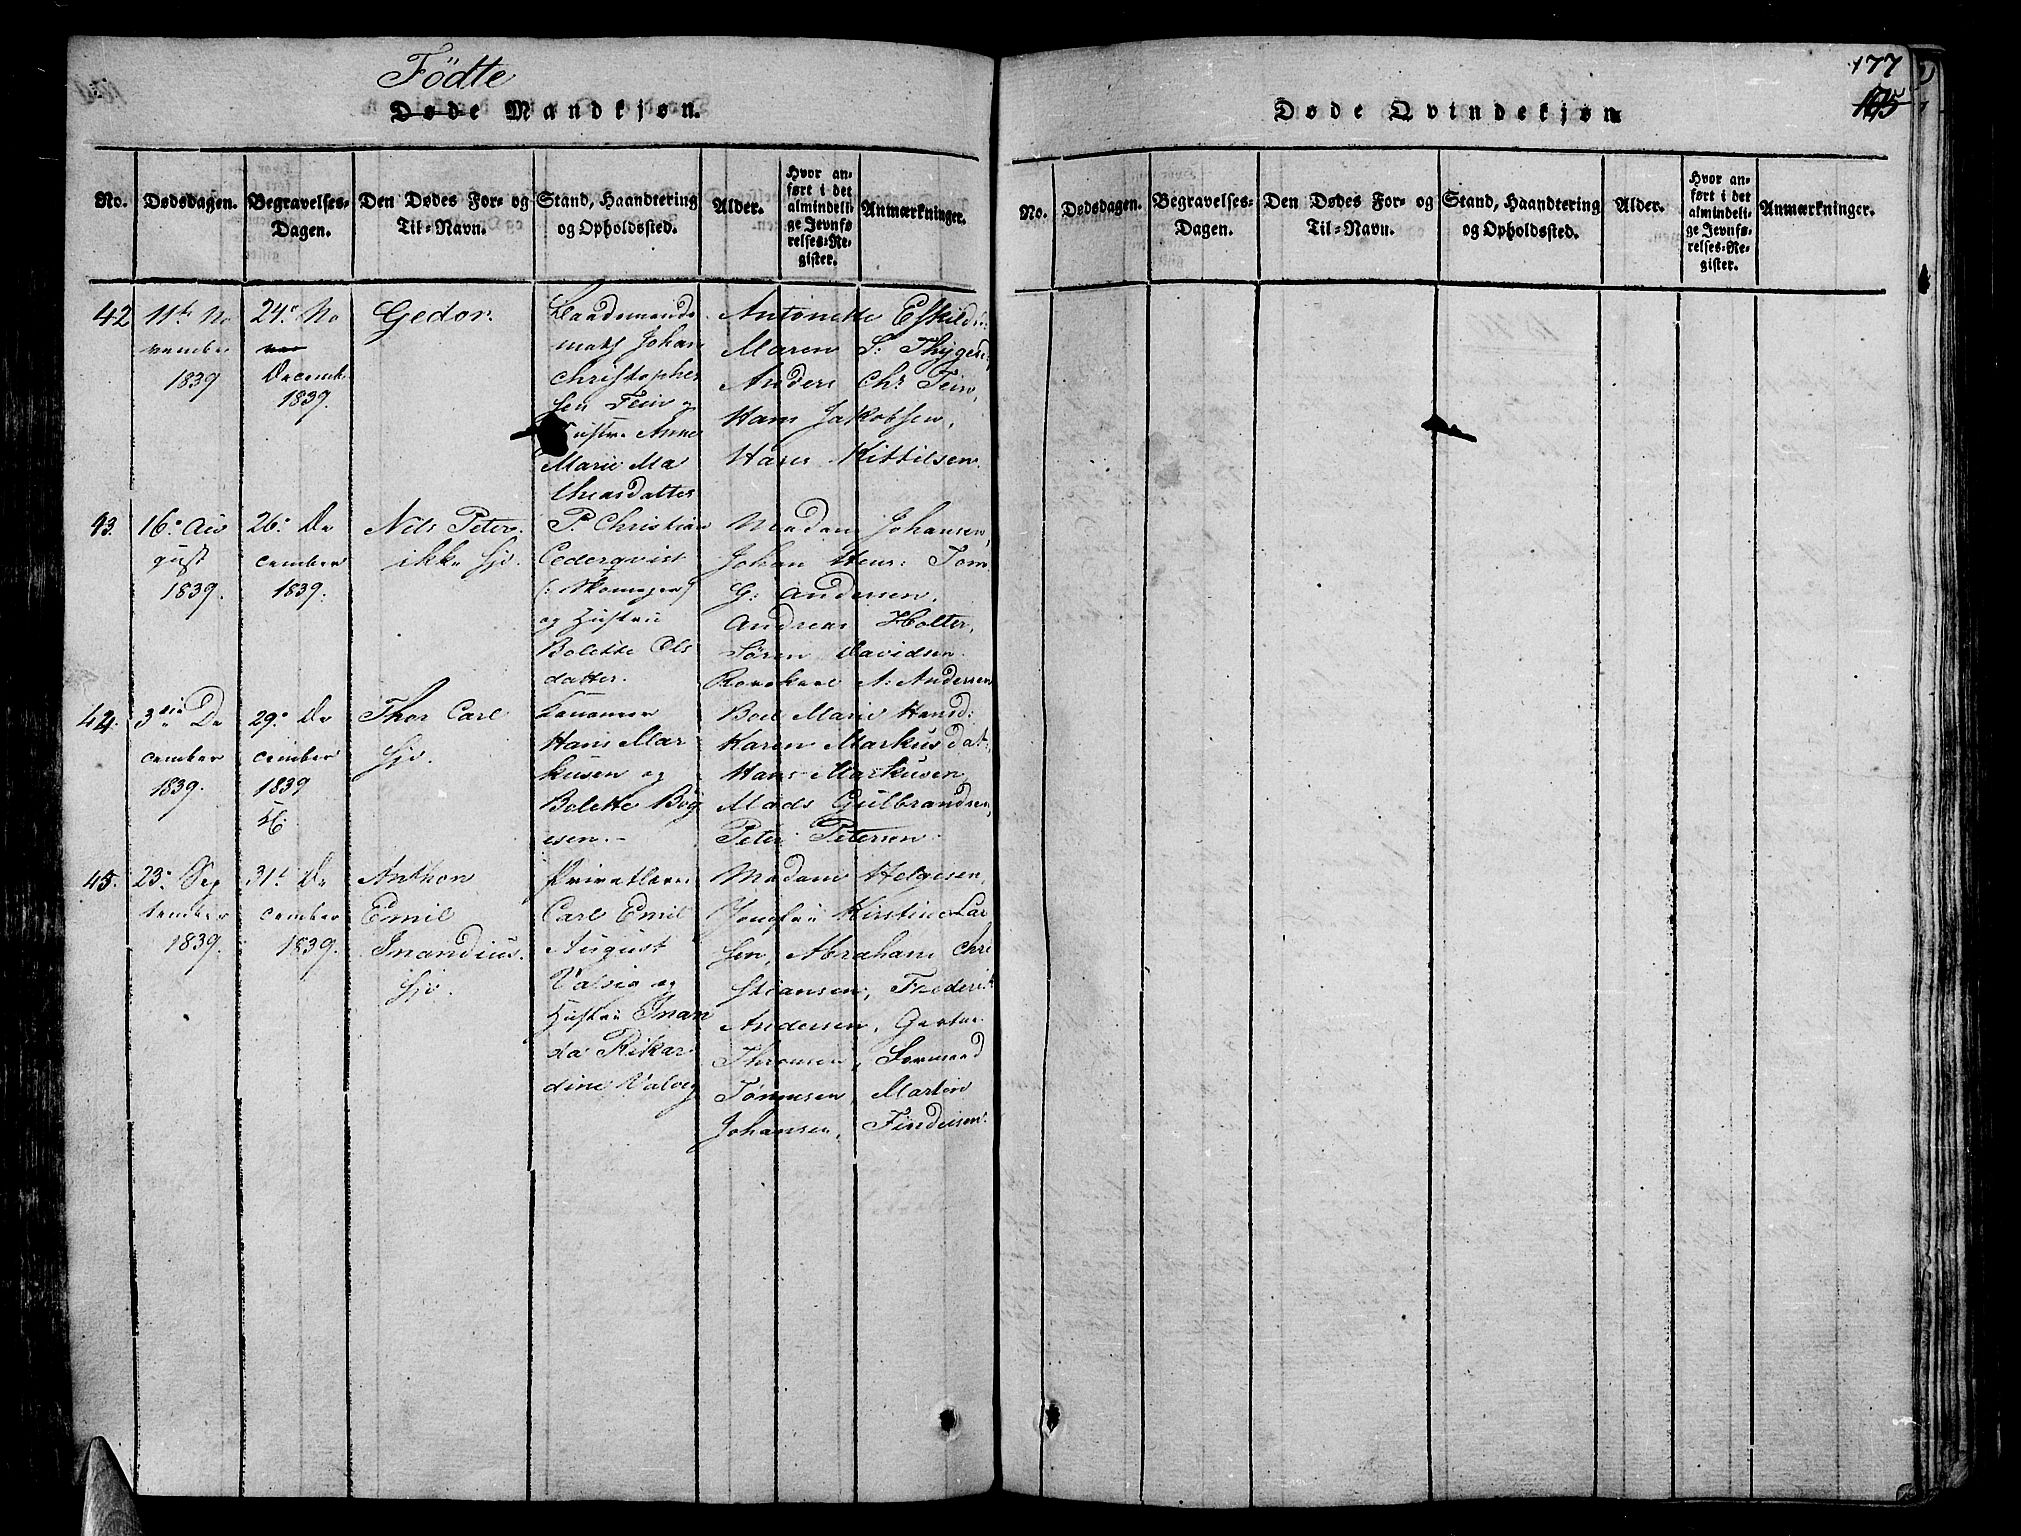 Födte
Døde Mandkjøn.
No.
Dødsdagen.
Begravelses-
Dagen.
Den Dødes For- og
Til-Navn.
Stand, Haandtering
og Opholdssted.
Alder.
Hvor an-
ført i det
almindeli-
ge Jevnfø-
relses-Re-
gister.
Anmærkninger.
42
11te No
vember
1839
24de No
Decemb
1839.
Gedor.
Johan
Christopher
sen Fein og
Hustru Anne
Marie Ma
theasdatter
Antonette Eskilds:
Maren S: Thygesen
Anders Chr Fein,
Hans Jakobsen,
Hans Kittilsen.
43.
16de Au
gust
1839.
26de De
cember
1839.
Nils Peter.
ikke hjd.
P. Christian
Cederqvist
(: Skomager)
og Hustru
Bolette Ols
datter.
Madam Johansen,
Johan Hens: Tom
G: Andersen.
Andreas Holter,
Sören Davidsen.
A: Andersen
44.
3die De
cember
1839.
29de De
cember
1839
Thor Carl
hjd.
Hans Mar
kusen og
Bolette Böy
esen.-
Boel Marie Hansd:
Karen Markusdat.
Hans Markusen,
Mads Gulbrandsen,
Peter Petersen.
45.
23de Sep
tember
1839.
31te De
cember
1839.
Anthon
Emil
Inandius.
hjd.
Privatlærer
Carl Emil
August
Valvig og
Hustru Inan
da Rikar
dine Valvig
Madam Helgesen,
Jomfru Kirstine Lar
sen, Abraham Chri
stiansen, Frederik
Andersen,
Thomsen,
Tönnesen, Martin
Johansen, Findusen.
177
175
Døde Qvindekjøn
No.
Dødsdagen.
Begravelses-
Dagen.
Den Dødes For- og
Til-Navn.
Stand, Haandtering
og Opholdssted.
Alder.
Hvor an-
ført i det
almindeli-
ge Jevnfø-
relses-Re-
gister.
Anmærkninger.